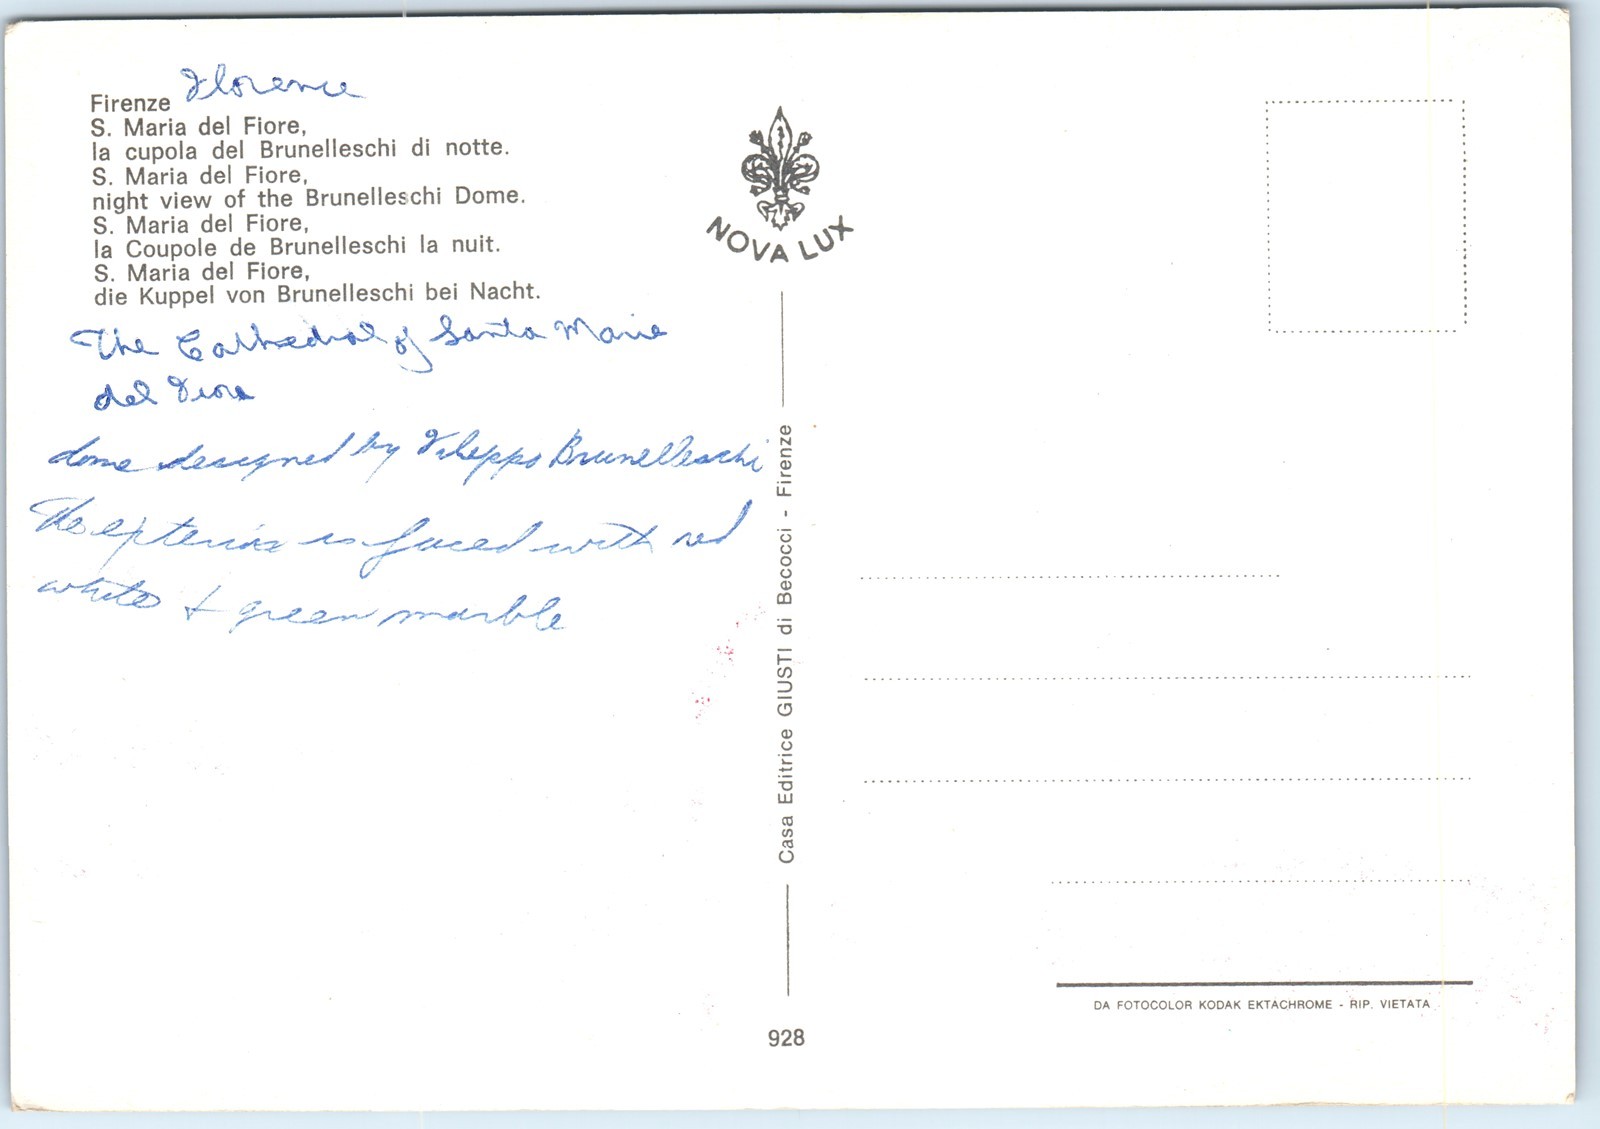 Firenze Florence
S. Maria del Fiore,
la cupola del Brunelleschi di notte.
S. Maria del Fiore,
night view of the Brunelleschi Dome.
S. Maria del Fiore,
la Coupole de Brunelleschi la nuit.
S. Maria del Fiore,
die Kuppel von Brunelleschi bei Nacht.
The Cathedral of Santa Maria
del Fiore
dome designed by Filippo Brunelleschi
The exterior is faced with red
white + green marble
NOVA LUX
Casa Editrice GIUSTI di Becocci - Firenze
928
DA FOTOCOLOR KODAK EKTACHROME - RIP. VIETATA